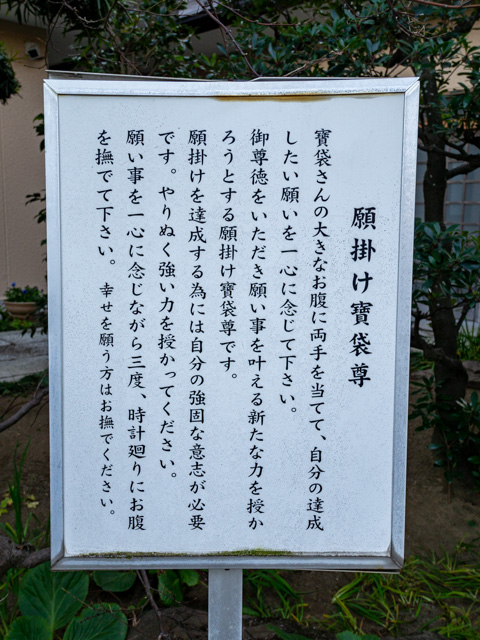 願掛け寶袋尊
寶袋さんの大きなお腹に両手を当てて、自分の達成
したい願いを一心に念じて下さい。
御尊徳をいただき願い事を叶える新たな力を授か
ろうとする願掛け寶袋尊です。
願掛けを達成する為には自分の強固な意志が必要
です。やりぬく強い力を授かってください。
願い事を一心に念じながら三度、時計廻りにお腹
を撫でて下さい。幸せを願う方はお撫でください。